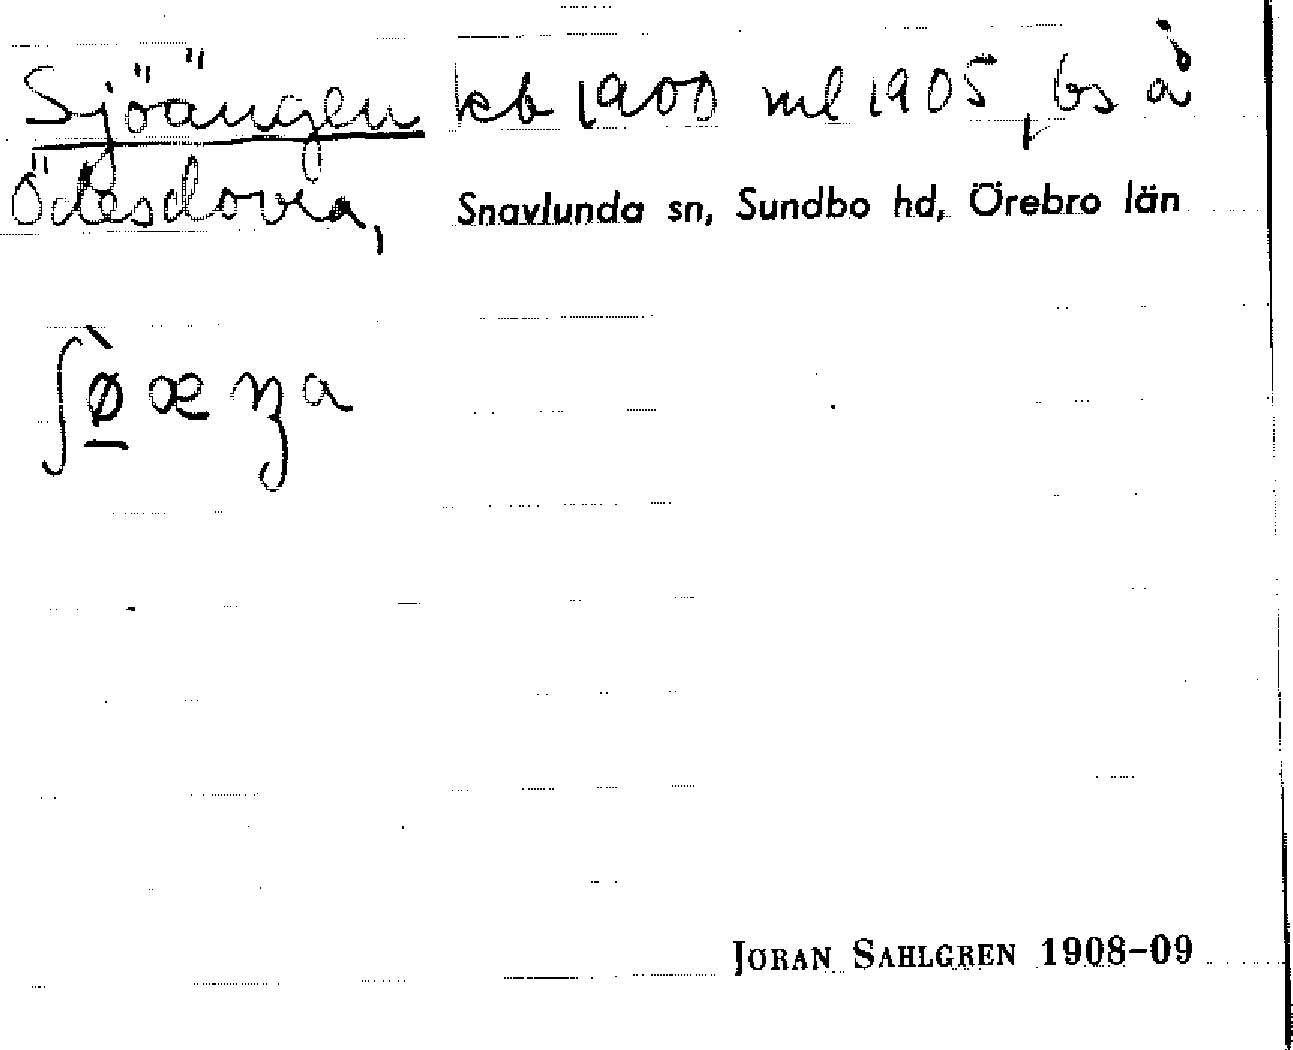 Sjöängen kb 1900 ml 1905, bs å
Ödesdovra, Snavlunda sn, Sundbo hd, Örebro län
JÖRAN SAHLGREN 1908–09